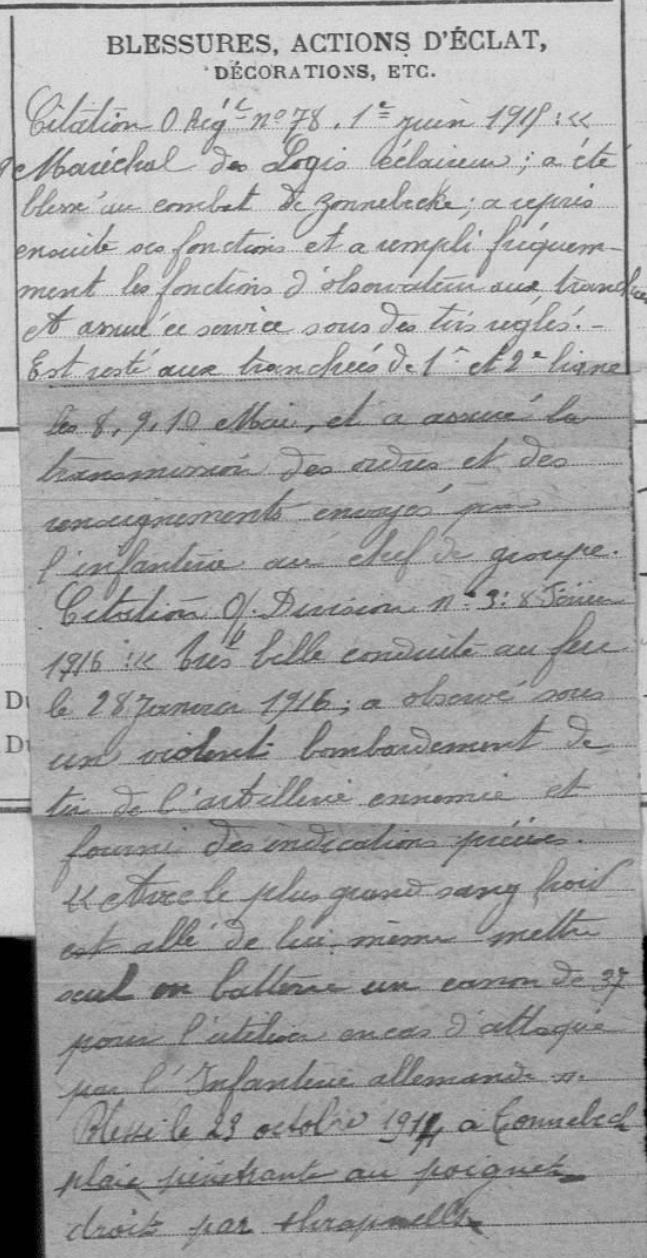 BLESSURES, ACTIONS D'ÉCLAT,
DÉCORATIONS, ETC.
Citation O Régt no 78. 1e juin 1915 : «
Maréchal des Logis éclaireur ; a été
blessé au combat de Zonnebecke ; a repris
ensuite ses fonctions et a rempli fréquem-
ment les fonctions d'observateur aux tranchées
et assuré ce service sous des tirs réglés. -
Est resté aux tranchées de 1e et 2e ligne
les 8, 9, 10 Mai, et a assuré la
transmission des ordres et des
renseignements envoyés par
l'infanterie au chef de groupe.
Citation O/. Division no 3 : 8 Février
1916 : « très belle conduite au feu
le 28 Janvier 1916 ; a observé sous
un violent bombardement de
tir de l'artillerie ennemie et
fourni des indications précises.
« Avec le plus grand sang froid
est allé de lui-même mettre
seul en batterie un canon de 37
pour l'utiliser en cas d'attaque
par l'Infanterie allemande ».
Blessé le 23 octobre 1914 à Zonnebeck
plaie pénétrante au poignet
droit par shrapnells
Du
Du